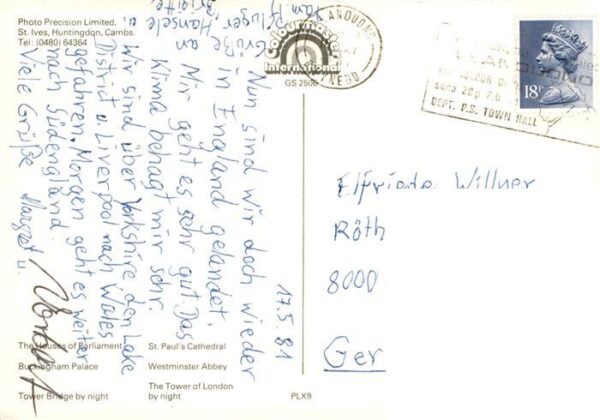 Photo Precision Limited,
St. Ives, Huntingdon, Cambs.
Tel: (0480) 64364
Colourmaster
International
GS 2506
LLANDUDNO
18P
DEPT. P.S. TOWN HALL
17.5.81
Nun sind wir doch wieder
in England gelandet.
Mir geht es sehr gut. Das
Klima behagt mir sehr.
Wir sind über Yorkshire den Lake
District u. Liverpool nach Wales
gefahren. Morgen geht es weiter
nach Südengland.
Viele Grüße Margret u.
Grüße an
Hansele u.
Brigitte
Elfriede Willner
Röth
8000
Ger
The Houses of Parliament
Buckingham Palace
Tower Bridge by night
St. Paul's Cathedral
Westminster Abbey
The Tower of London
by night
PLX9